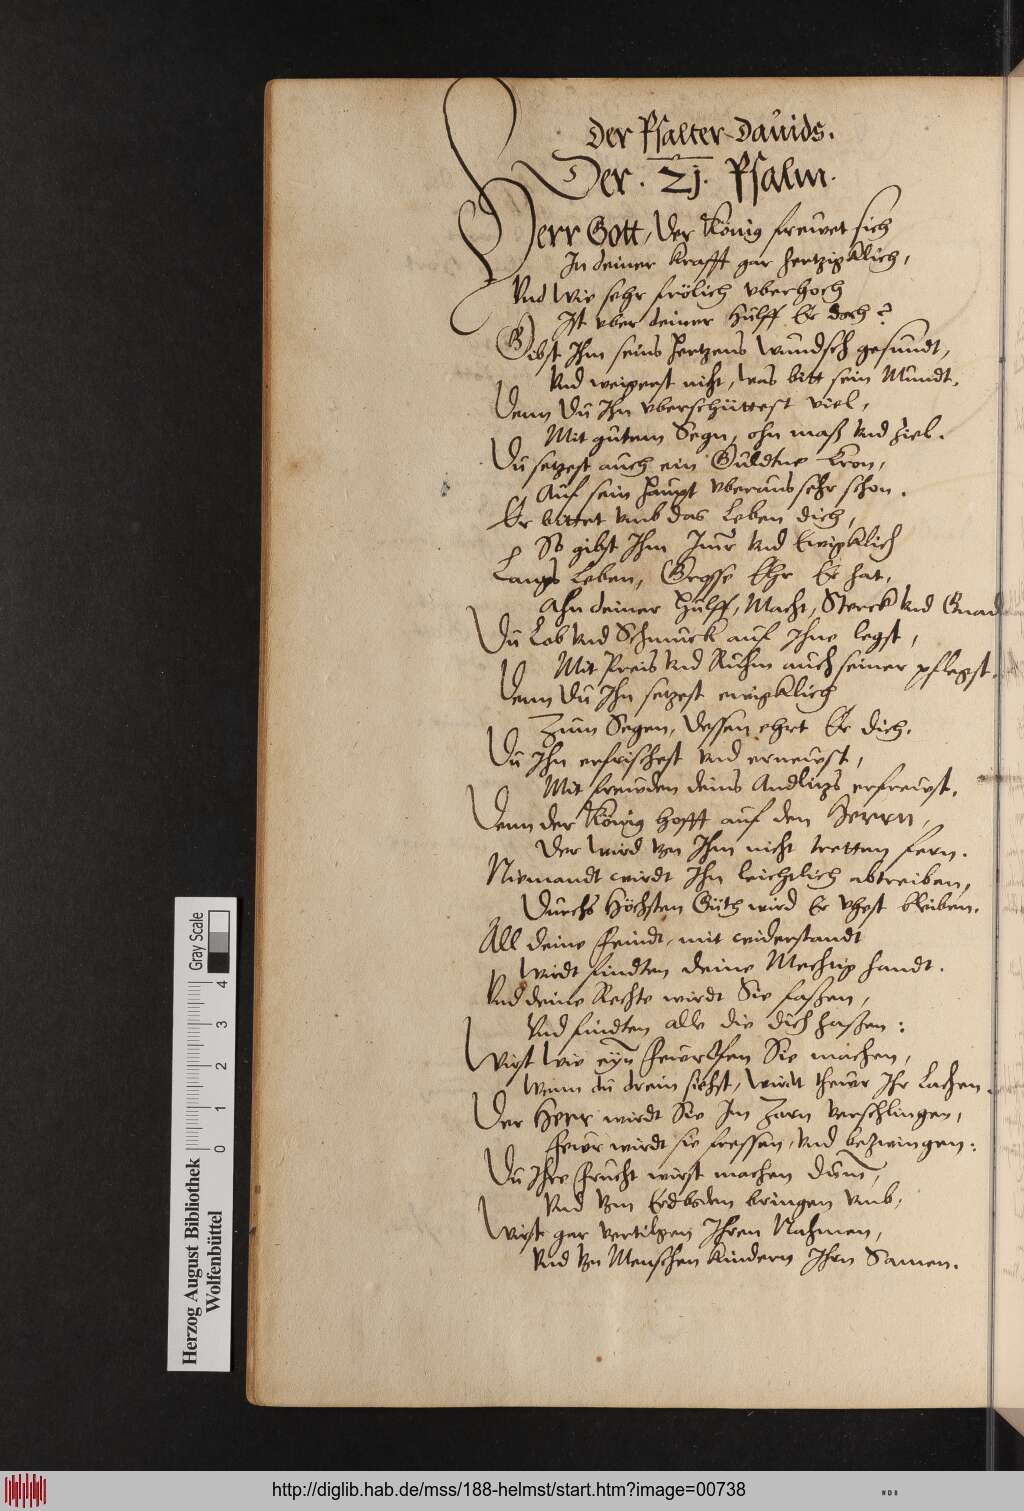 Der Psalter Dauids.
Der . 21. Psalm.
Herr Gott, der König frewet sich
In deiner krafft gar hertzigklich,
Vnd wie sehr frölich vberhoch
Ist vber deiner Hülff Er doch?
Gibst Ihm seins Hertzens wundsch gesundt,
Vnd weigerst nicht, was bitt sein Mundt.
Denn Du Ihn vberschüttest viel,
Mit gutem Segn, ohn maß vnd ziel.
Du setzest auch ein Guldtne Kron,
Auf sein Haupt vberaus sehr schon.
Er bittet vmb das Leben dich,
So gibst Ihm Imr vnd Ewigklich
Langs Leben, Grosse Ehr Er hat,
Ahn deiner Hülff, Macht, Sterck vnd Gnad
Du Lob vnd Schmuck auf Ihne legst,
Mit Preis vnd Ruhm auch seiner pflegst.
Denn Du Ihn setzest ewigklich
Zum Segen, dessen ehrt Er dich.
Du Ihn erfrischest vnd ernewst,
Mit frewden deins Andlitzs erfrewst.
Denn der König hofft auf den Herrn,
Der wird von Ihm nicht tretten fern.
Niemandt wirdt Ihn leichtlich abtreiben,
Durchs Höchsten Güth wird Er vhest bleiben.
All deine Feindt, mit widerstandt
Wirdt findten deine Mechtig handt.
Vnd deine Rechte wirdt Sie faßen,
Vnd findten alle die dich haßen:
Wirst wie eyn Fewr Ofen Sie machen,
Wenn du drein sichst, wirdt thewr Ihr Lachen.
Der Herr wirdt Sie Im Zorn verschlingen,
Fewr wirdt sie fressen, vnd bezwingen:
Du Ihre Frucht wirst machen dum,
Vnd vom Erdboden bringen vmb,
Wirst gar vertilgen Ihren Nahmen,
Vnd von Menschen Kindern Ihrn Samen.
Herzog August Bibliothek
Wolfenbüttel
0 1 2 3 4
Gray Scale
http://diglib.hab.de/mss/188-helmst/start.htm?image=00738